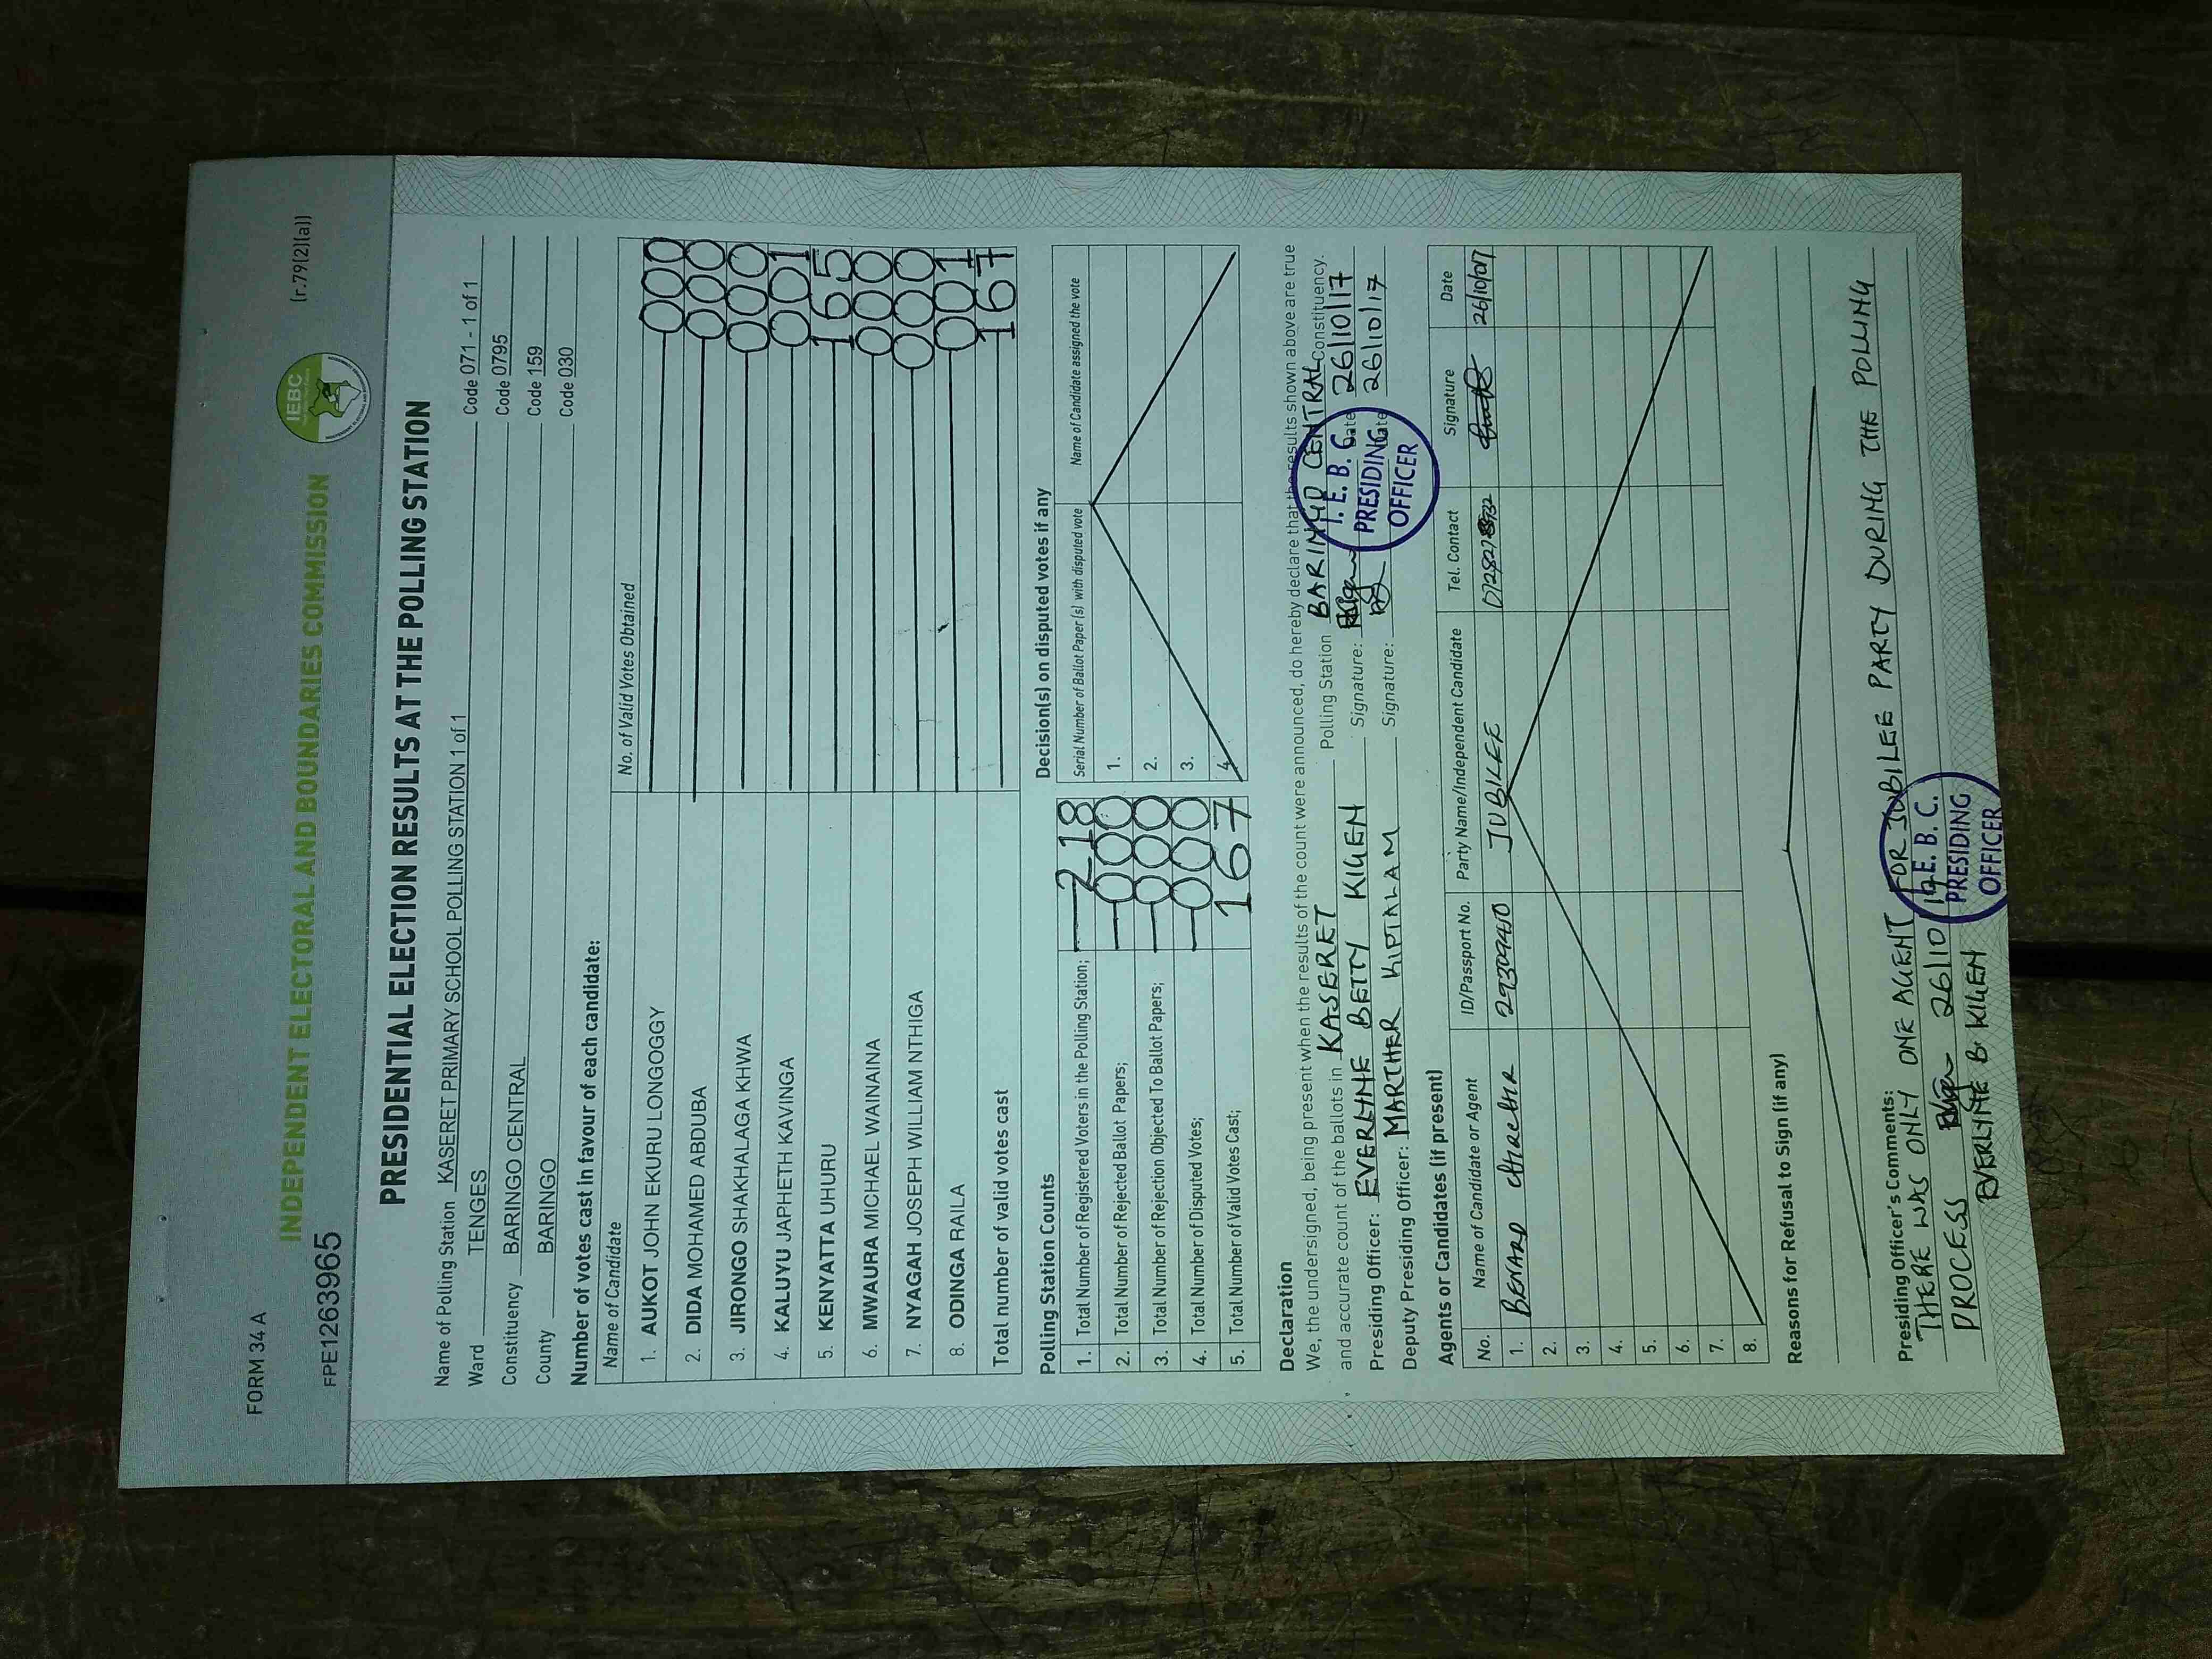 FORM 34 A
(r.79(2)(a))
FPE1263965
INDEPENDENT ELECTORAL AND BOUNDARIES COMMISSION
IEBC
PRESIDENTIAL ELECTION RESULTS AT THE POLLING STATION
Name of Polling Station KASERET PRIMARY SCHOOL POLLING STATION 1 of 1 Code 071 - 1 of 1
Ward TENGES Code 0795
Constituency BARINGO CENTRAL Code 159
County BARINGO Code 030
Number of votes cast in favour of each candidate:
Name of Candidate No. of Valid Votes Obtained
1. AUKOT JOHN EKURU LONGOGGY 000
2. DIDA MOHAMED ABDUBA 000
3. JIRONGO SHAKHALAGA KHWA 000
4. KALUYU JAPHETH KAVINGA 001
5. KENYATTA UHURU 165
6. MWAURA MICHAEL WAINAINA 000
7. NYAGAH JOSEPH WILLIAM NTHIGA 000
8. ODINGA RAILA 001
Total number of valid votes cast 167
Polling Station Counts
1. Total Number of Registered Voters in the Polling Station; 218
2. Total Number of Rejected Ballot Papers; 000
3. Total Number of Rejection Objected To Ballot Papers; 000
4. Total Number of Disputed Votes; 000
5. Total Number of Valid Votes Cast; 167
Decision(s) on disputed votes if any
Serial Number of Ballot Paper (s) with disputed vote Name of Candidate assigned the vote
1.
2.
3.
4.
Declaration
We, the undersigned, being present when the results of the count were announced, do hereby declare that the results shown above are true
and accurate count of the ballots in KASERET Polling Station BARINGO CENTRAL Constituency.
Presiding Officer: EVERLINE BETTY KIGEN Signature: Date 26/10/17
Deputy Presiding Officer: MARTHER KIPTALAM Signature: Date 26/10/17
I. E. B. C.
PRESIDING
OFFICER
Agents or Candidates (if present)
No. Name of Candidate or Agent ID/Passport No. Party Name/Independent Candidate Tel. Contact Signature Date
1. BENARD JUBILEE 26/10/017
2.
3.
4.
5.
6.
7.
8.
Reasons for Refusal to Sign (if any)
Presiding Officer's Comments:
THERE WAS ONLY ONE AGENT FOR JUBILEE PARTY DURING THE POLLING
PROCESS 26/10/17
EVERLYNE B. KIGEN
I. E. B. C.
PRESIDING
OFFICER